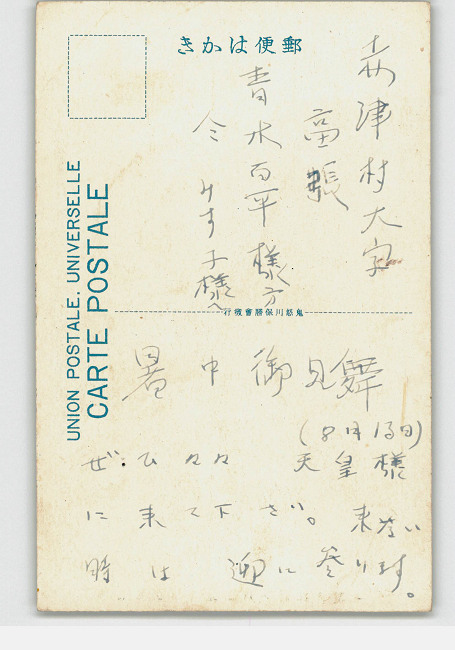 きかは便郵
UNION POSTALE. UNIVERSELLE
CARTE POSTALE
赤津村大字
高張
青木百平様方
みす子様へ
鬼怒川保勝會發行
暑中御見舞
(8月13日)
天皇様
ぜひ々々
来
に来て下さい。
時は迎に参ります。